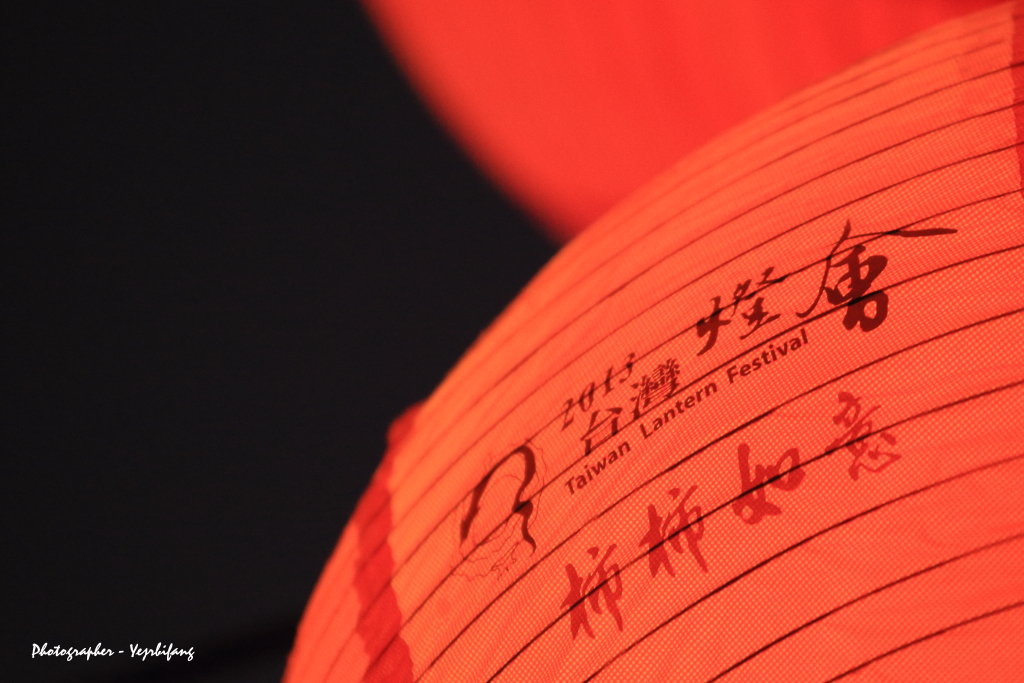 2013
台灣燈會
Taiwan Lantern Festival
柿柿如意
Photographer - Yeprbifang